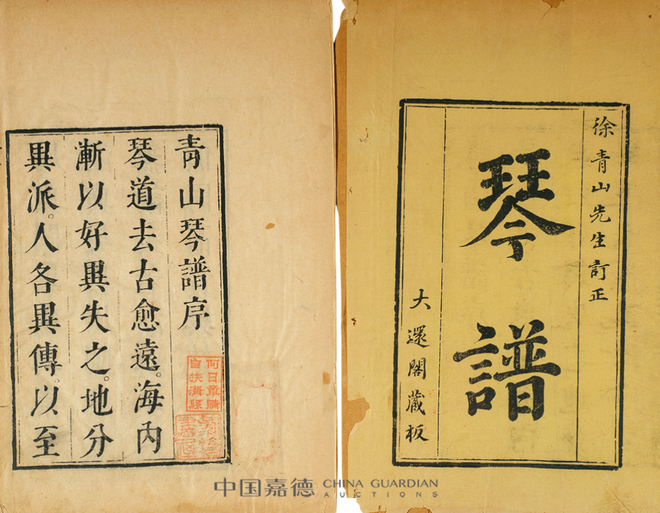 徐青山先生訂正
琴譜
大還閣藏板
青山琴譜序
琴道去古愈遠。海内
漸以好異失之。地分
異派。人各異傳。以至
中国嘉德 CHINA GUARDIAN
AUCTIONS